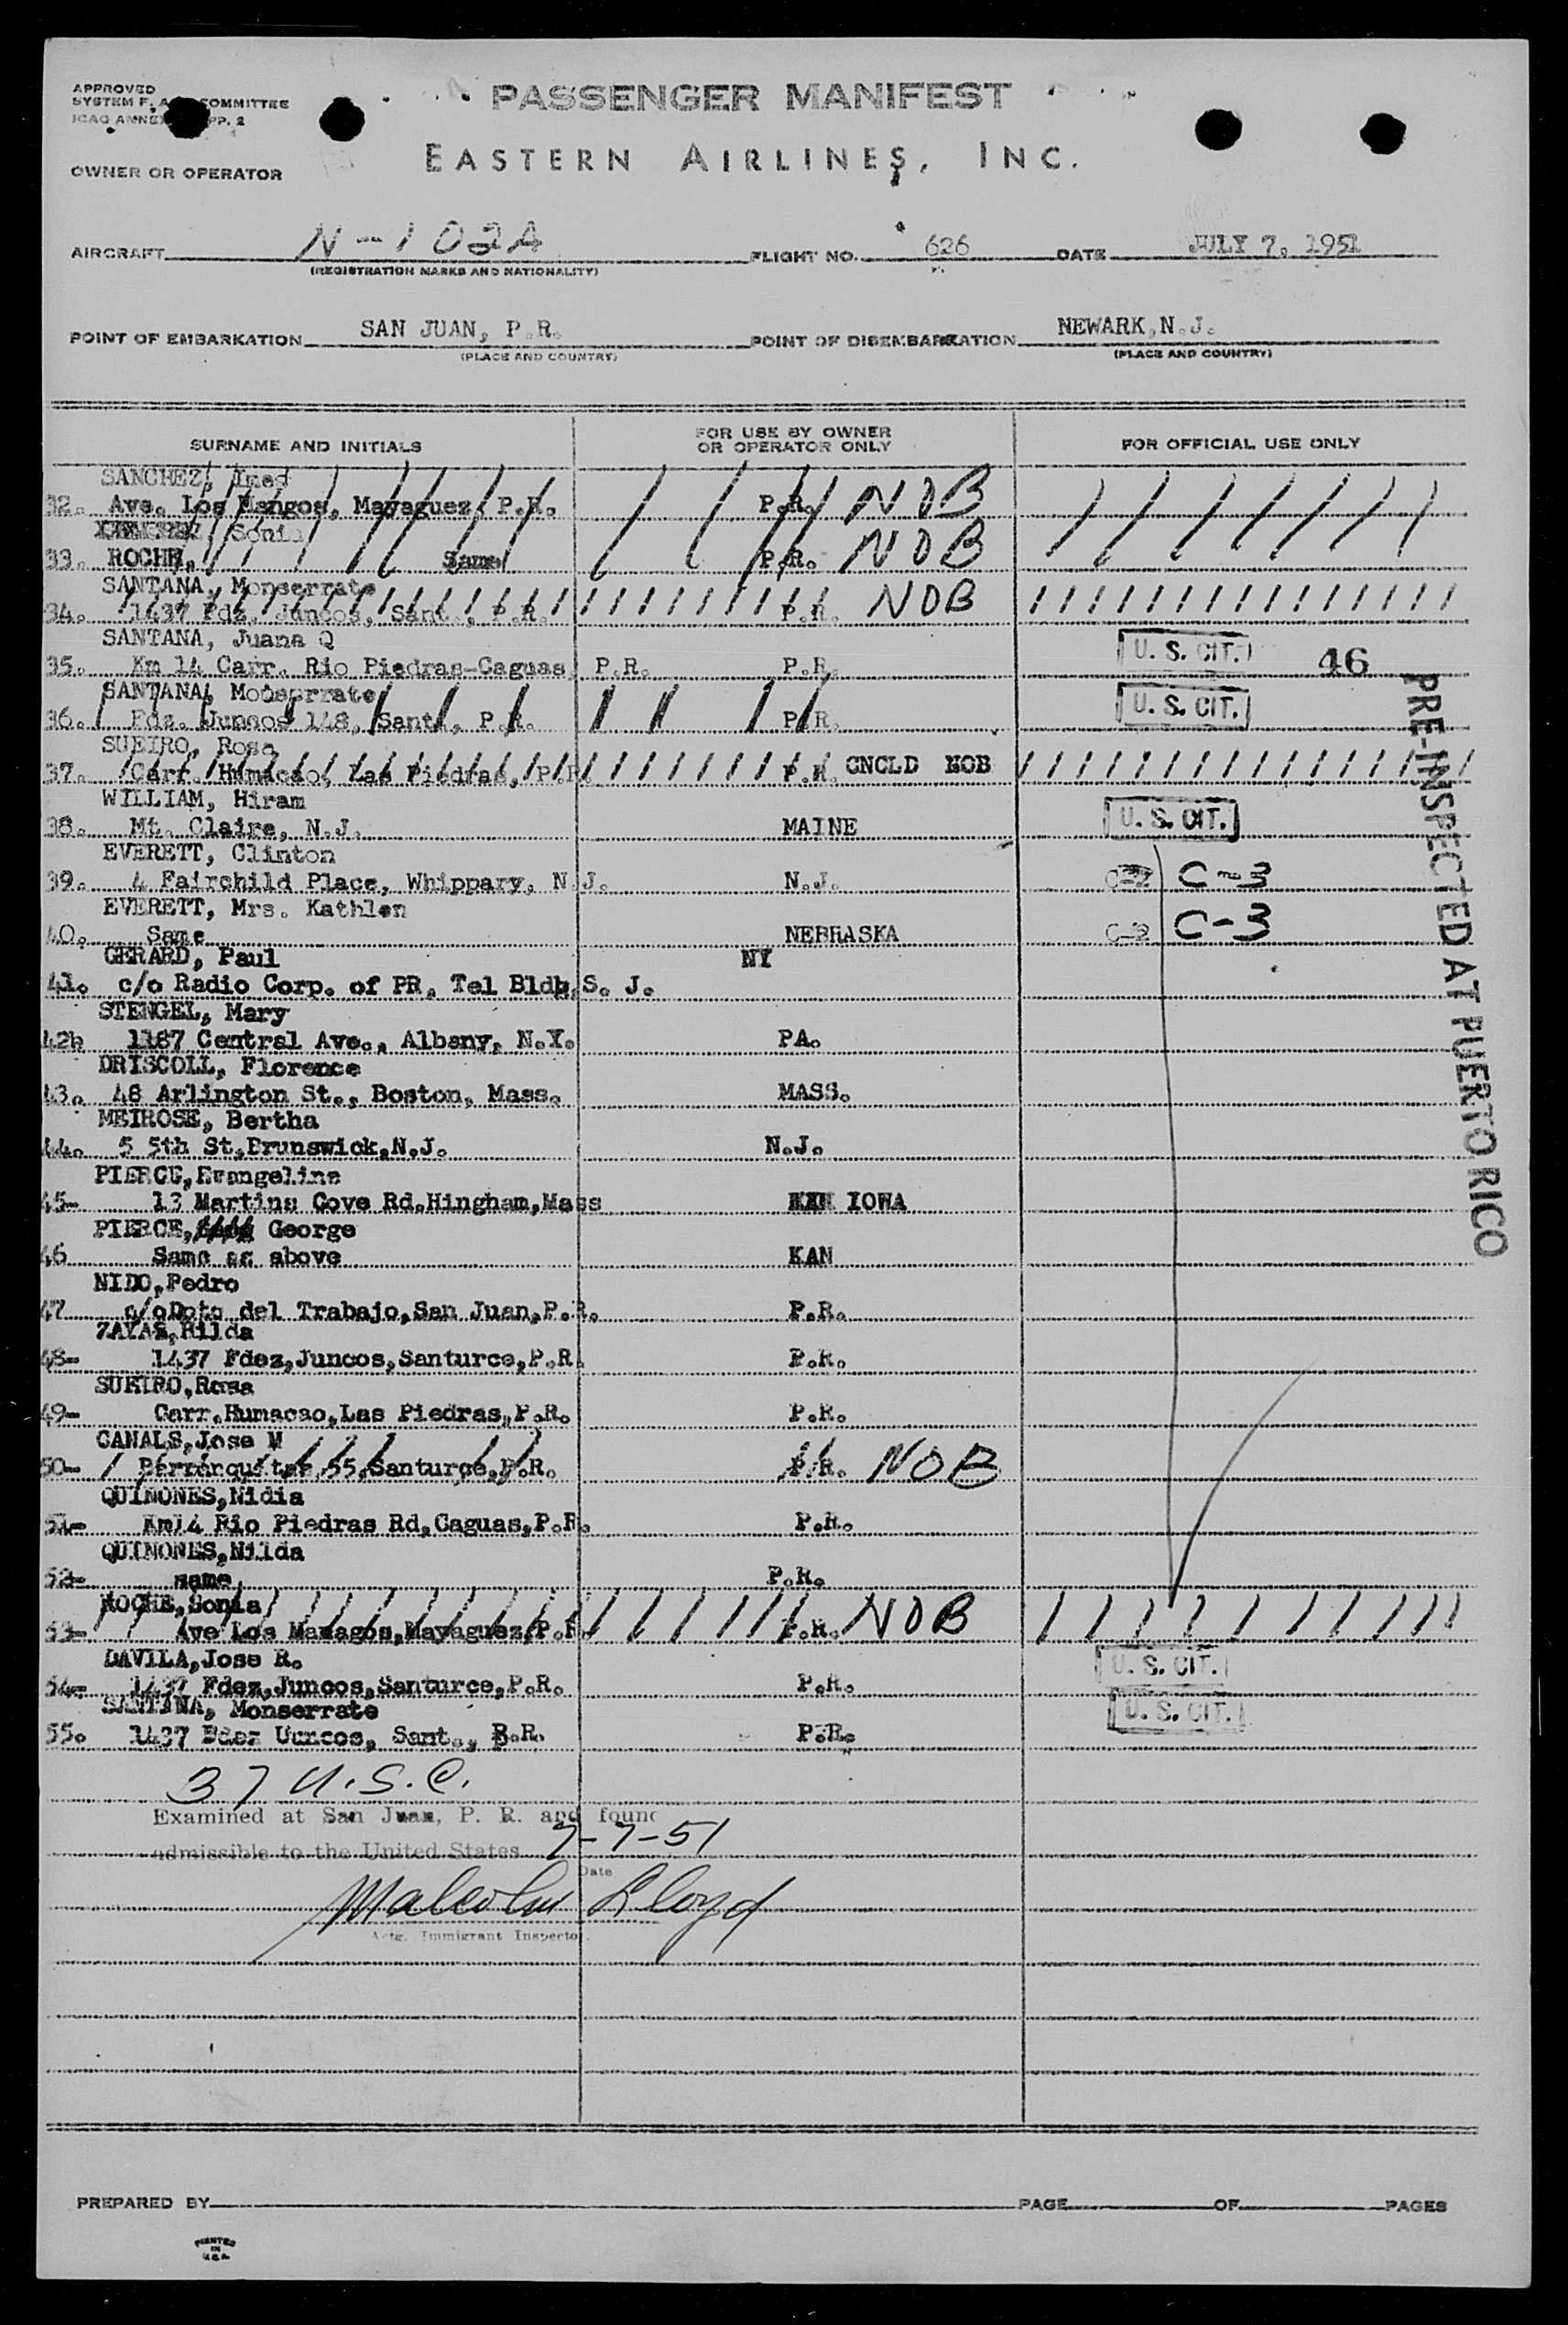 APPROVED
SYSTEM F. A. COMMITTEE
ICAO ANNEX PP. 2
PASSENGER MANIFEST
EASTERN AIRLINES, INC.
OWNER OR OPERATOR
AIRCRAFT N-102A FLIGHT NO. 626 DATE JULY 7, 1951
(REGISTRATION MARKS AND NATIONALITY)
POINT OF EMBARKATION SAN JUAN, P.R. POINT OF DISEMBARKATION NEWARK,N.J.
(PLACE AND COUNTRY) (PLACE AND COUNTRY)
SURNAME AND INITIALS
FOR USE BY OWNER
OR OPERATOR ONLY
FOR OFFICIAL USE ONLY
SANCHEZ, Ines
32. Ave. Los Mangos, Mayaguez, P.R. P.R. NOB
Sonia
33. ROCHE, Same P.R. NOB
SANTANA, Monserrate
34. 1437 Fdz. Juncos, Sant., P.R. P.R. NOB
SANTANA, Juana Q
35. Km 14 Carr. Rio Piedras-Caguas P.R. P.R. U. S. CIT. 46
SANTANA, Monserrate
36. Fdz. Juncos 148, Sant., P.R. P.R. U. S. CIT.
SUEIRO, Rosa
37. Carr. Humacao, Las Piedras, P.R. P.R. CNCLD NOB
WILLIAM, Hiram
38. Mt. Claire, N.J. MAINE U. S. CIT.
EVERETT, Clinton
39. 4 Fairchild Place, Whippary, N.J. N.J. C-3
EVERETT, Mrs. Kathlen
40. Same NEBRASKA C-3
GERARD, Paul NY
41. c/o Radio Corp. of PR, Tel Bldg,S. J.
STENGEL, Mary
42 1187 Central Ave., Albany, N.Y. PA.
DRISCOLL, Florence
43. 48 Arlington St., Boston, Mass. MASS.
MEIROSE, Bertha
44. 5 5th St,Brunswick,N.J. N.J.
PIERCE,Evangeline
45- 13 Martins Cove Rd,Hingham,Mass IOWA
PIERCE, George
46 Same as above KAN
NIDO,Pedro
47 c/oDpto del Trabajo,San Juan,P.R. P.R.
ZAYAS,Hilda
48- 1437 Fdez,Juncos,Santurce,P.R. P.R.
SUEIRO,Rosa
49- Carr.Humacao,Las Piedras,P.R. P.R.
CANALS,Jose M
50- Barranquitas 55,Santurce,P.R. P.R. NOB
QUINONES,Nidia
51- Km14 Rio Piedras Rd,Caguas,P.R. P.R.
QUINONES,Nilda
52- same P.R.
ROCHE,Sonia
53- Ave Los Managos,Mayaguez,P.R. P.R. NOB
DAVILA,Jose R.
54- 1437 Fdez,Juncos,Santurce,P.R. P.R. U. S. CIT.
SANTANA, Monserrate
55. 1437 Fdez Uuncos, Sant., P.R. P.R. U. S. CIT.
PRE-INSPECTED AT PUERTO RICO
37 U.S.C.
Examined at San Juan, P. R. and found
admissible to the United States 7-7-51
Date
Malcolm Lloyd
Actg. Immigrant Inspector.
PREPARED BY PAGE OF PAGES
PRINTED
IN
U.S.A.